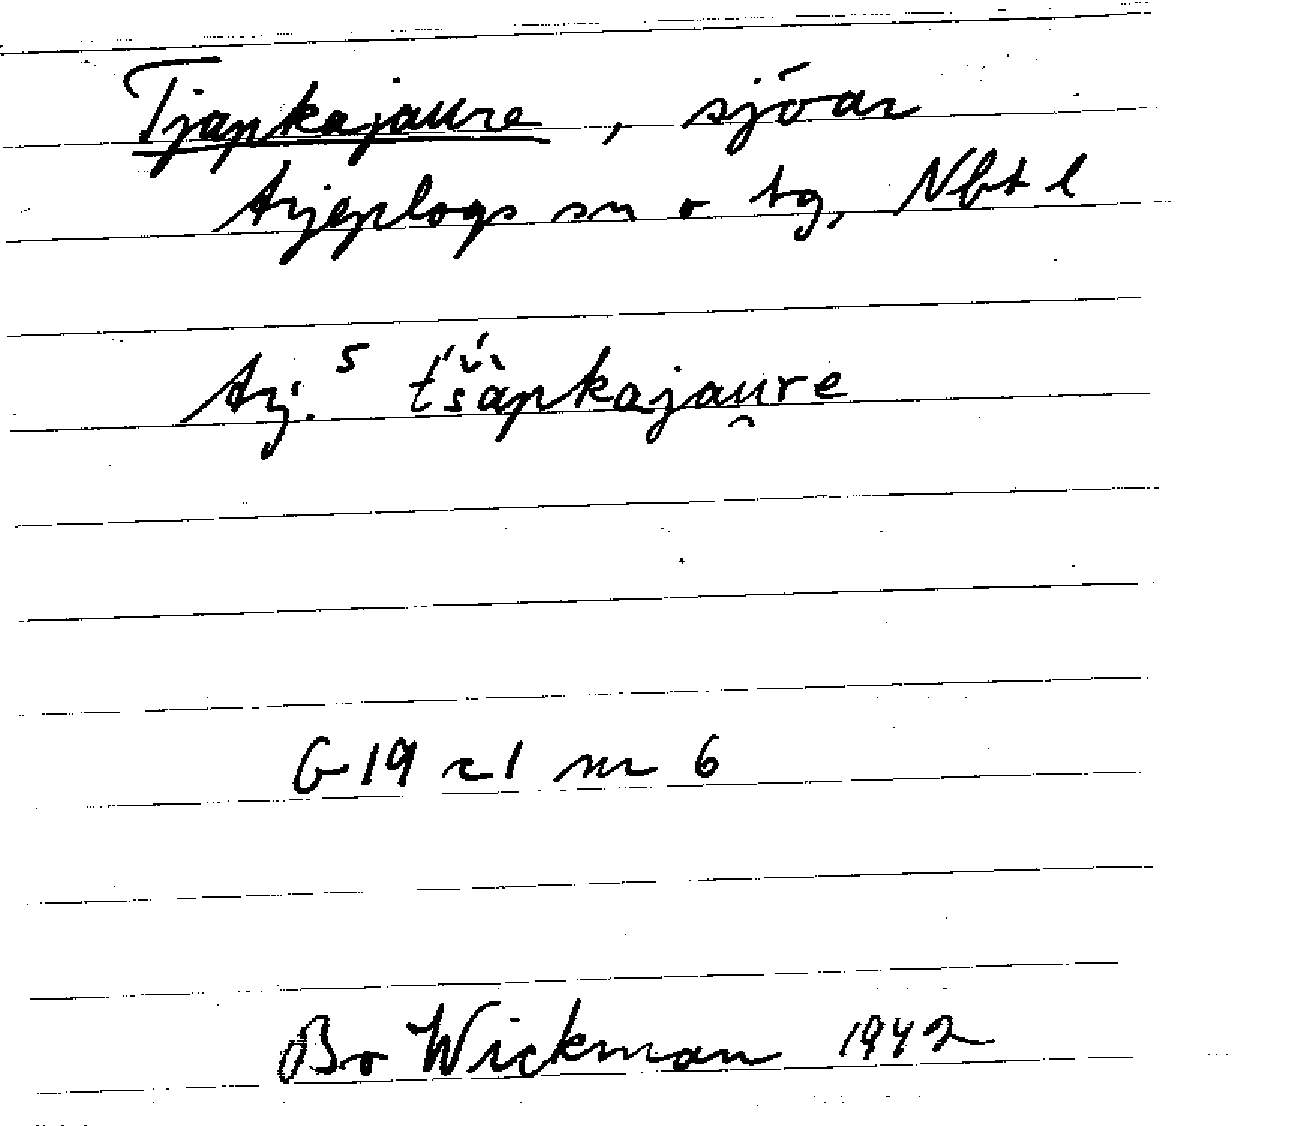 Tjapkajaure, sjöar
Arjeplogs sn o tg, Nbt l
Arj. s t́šàpkajau̯re
G 19 c 1 nr 6
Bo Wickman 1942